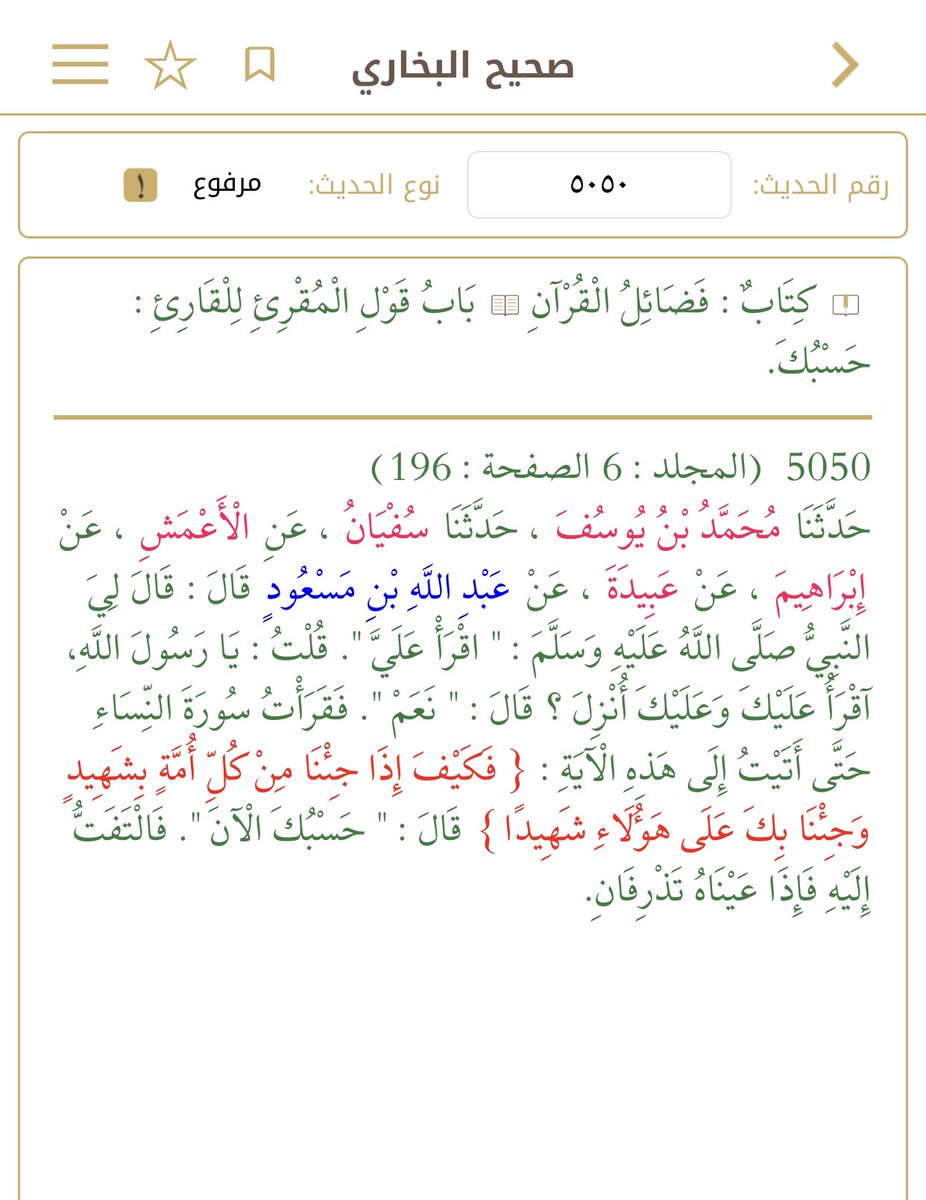 صحيح البخاري
رقم الحديث: ٥٠٥٠ نوع الحديث: مرفوع
كِتَابٌ : فَضَائِلُ الْقُرْآنِ بَابُ قَوْلِ الْمُقْرِئِ لِلْقَارِئِ :
حَسْبُكَ.
5050 (المجلد : 6 الصفحة : 196)
حَدَّثَنَا مُحَمَّدُ بْنُ يُوسُفَ ، حَدَّثَنَا سُفْيَانُ ، عَنِ الْأَعْمَشِ ، عَنْ
إِبْرَاهِيمَ ، عَنْ عَبِيدَةَ ، عَنْ عَبْدِ اللَّهِ بْنِ مَسْعُودٍ قَالَ : قَالَ لِيَ
النَّبِيُّ صَلَّى اللَّهُ عَلَيْهِ وَسَلَّمَ : " اقْرَأْ عَلَيَّ ". قُلْتُ : يَا رَسُولَ اللَّهِ،
آقْرَأُ عَلَيْكَ وَعَلَيْكَ أُنْزِلَ ؟ قَالَ : " نَعَمْ ". فَقَرَأْتُ سُورَةَ النِّسَاءِ
حَتَّى أَتَيْتُ إِلَى هَذِهِ الْآيَةِ : { فَكَيْفَ إِذَا جِئْنَا مِنْ كُلِّ أُمَّةٍ بِشَهِيدٍ
وَجِئْنَا بِكَ عَلَى هَؤُلَاءِ شَهِيدًا } قَالَ : " حَسْبُكَ الْآنَ ". فَالْتَفَتُّ
إِلَيْهِ فَإِذَا عَيْنَاهُ تَذْرِفَانِ.